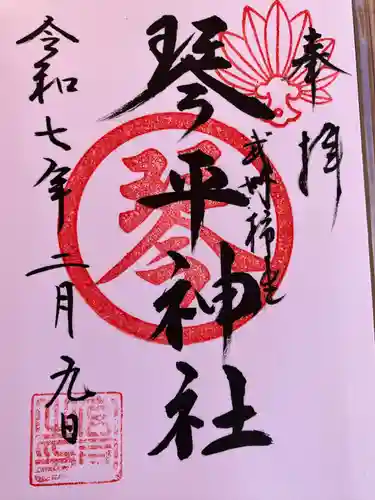 奉拝
武州柿生
琴平神社
令和七年二月九日
琴